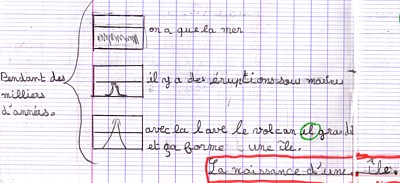 on a que la mer
Pendant des
milliers
d'années.
il y a des éruptions sou marines
avec la lave le volcan il grandi
et ça forme une île.
La naissance d'une île.